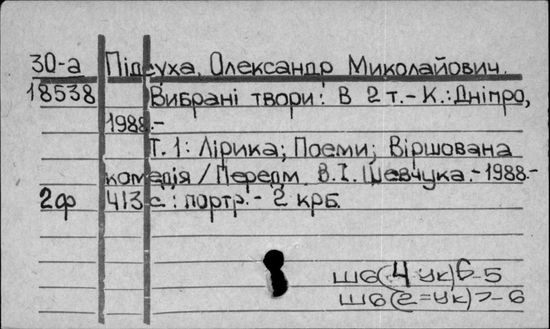 30-а Підсуха, Олександр Миколайович.
18538 Вибрані твори: В 2 т.- К.: Дніпро,
1988.-
Т. 1: Лірика; Поеми; Віршована
комедія / Передм. В.І. Шевчука.-1988.-
2ф 413 с.: портр.- 2 крб.
Ш6(4 Ук)6-5
Ш6(2=Ук)7-6